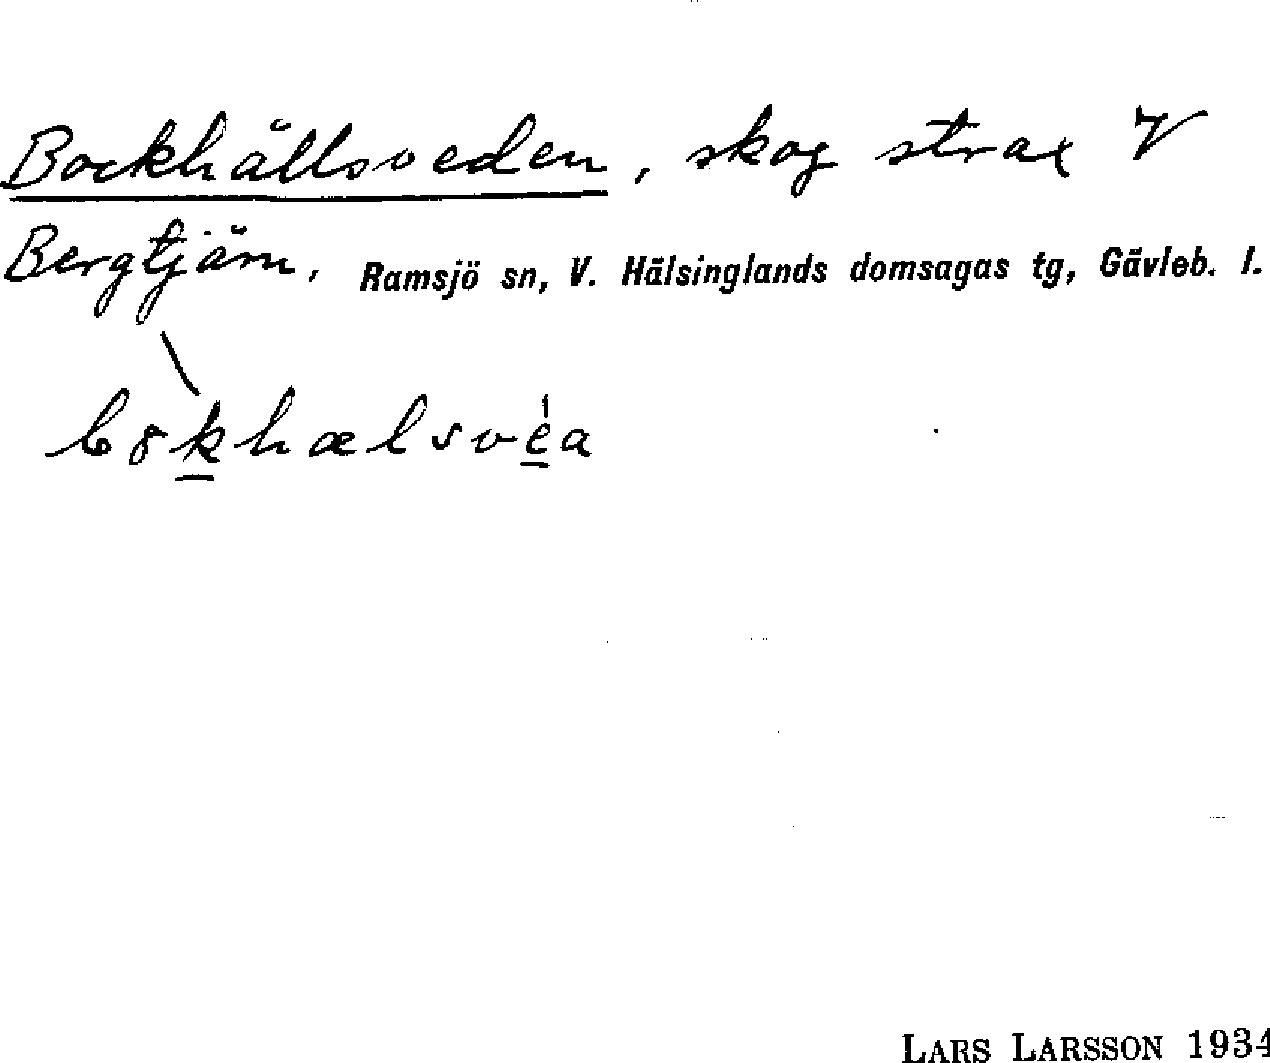 Bockhällsveden, skog strax V
Bergtjärn, Ramsjö sn, V. Hälsinglands domsagas tg, Gävleb. l.
b8khælsvéa
LARS LARSSON 1934